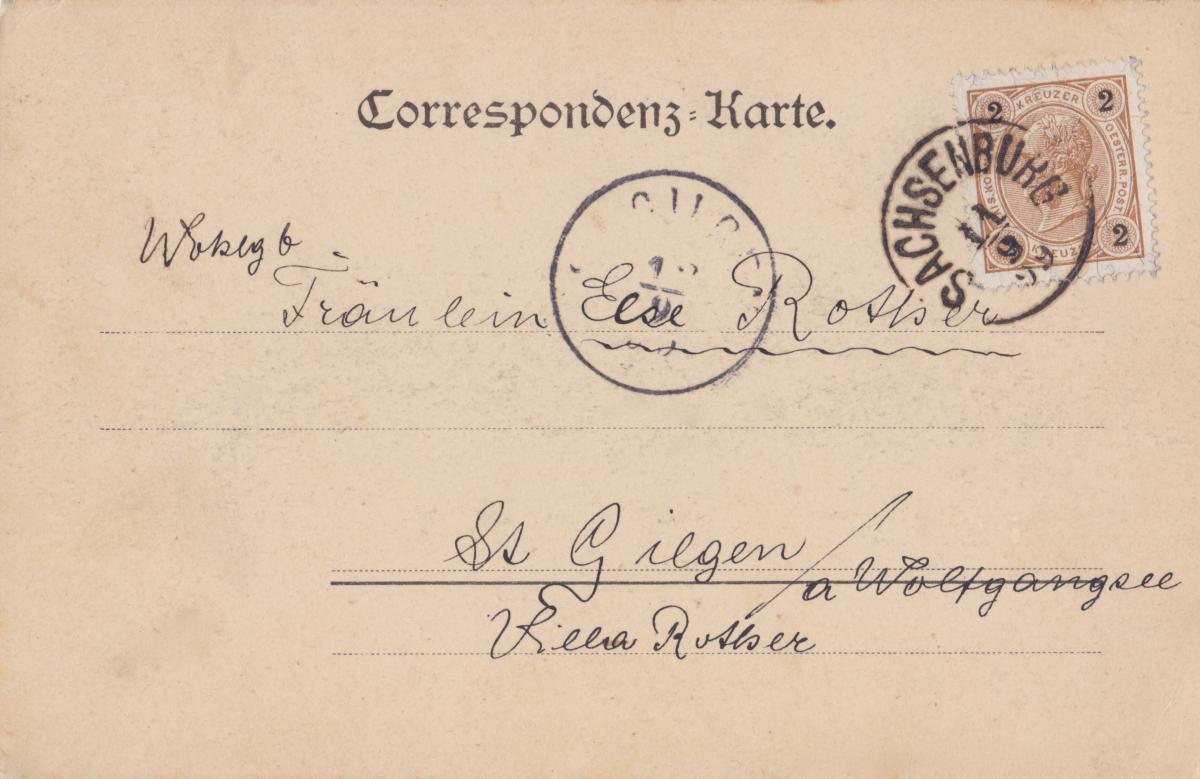 Correspondenz-Karte.
2 KREUZER 2
OESTERR. POST
2 KREUZER 2
SACHSENBURG
Wohlg b
Fräulein Else Rother
St Gilgen
a Wolfgangsee
Villa Rother